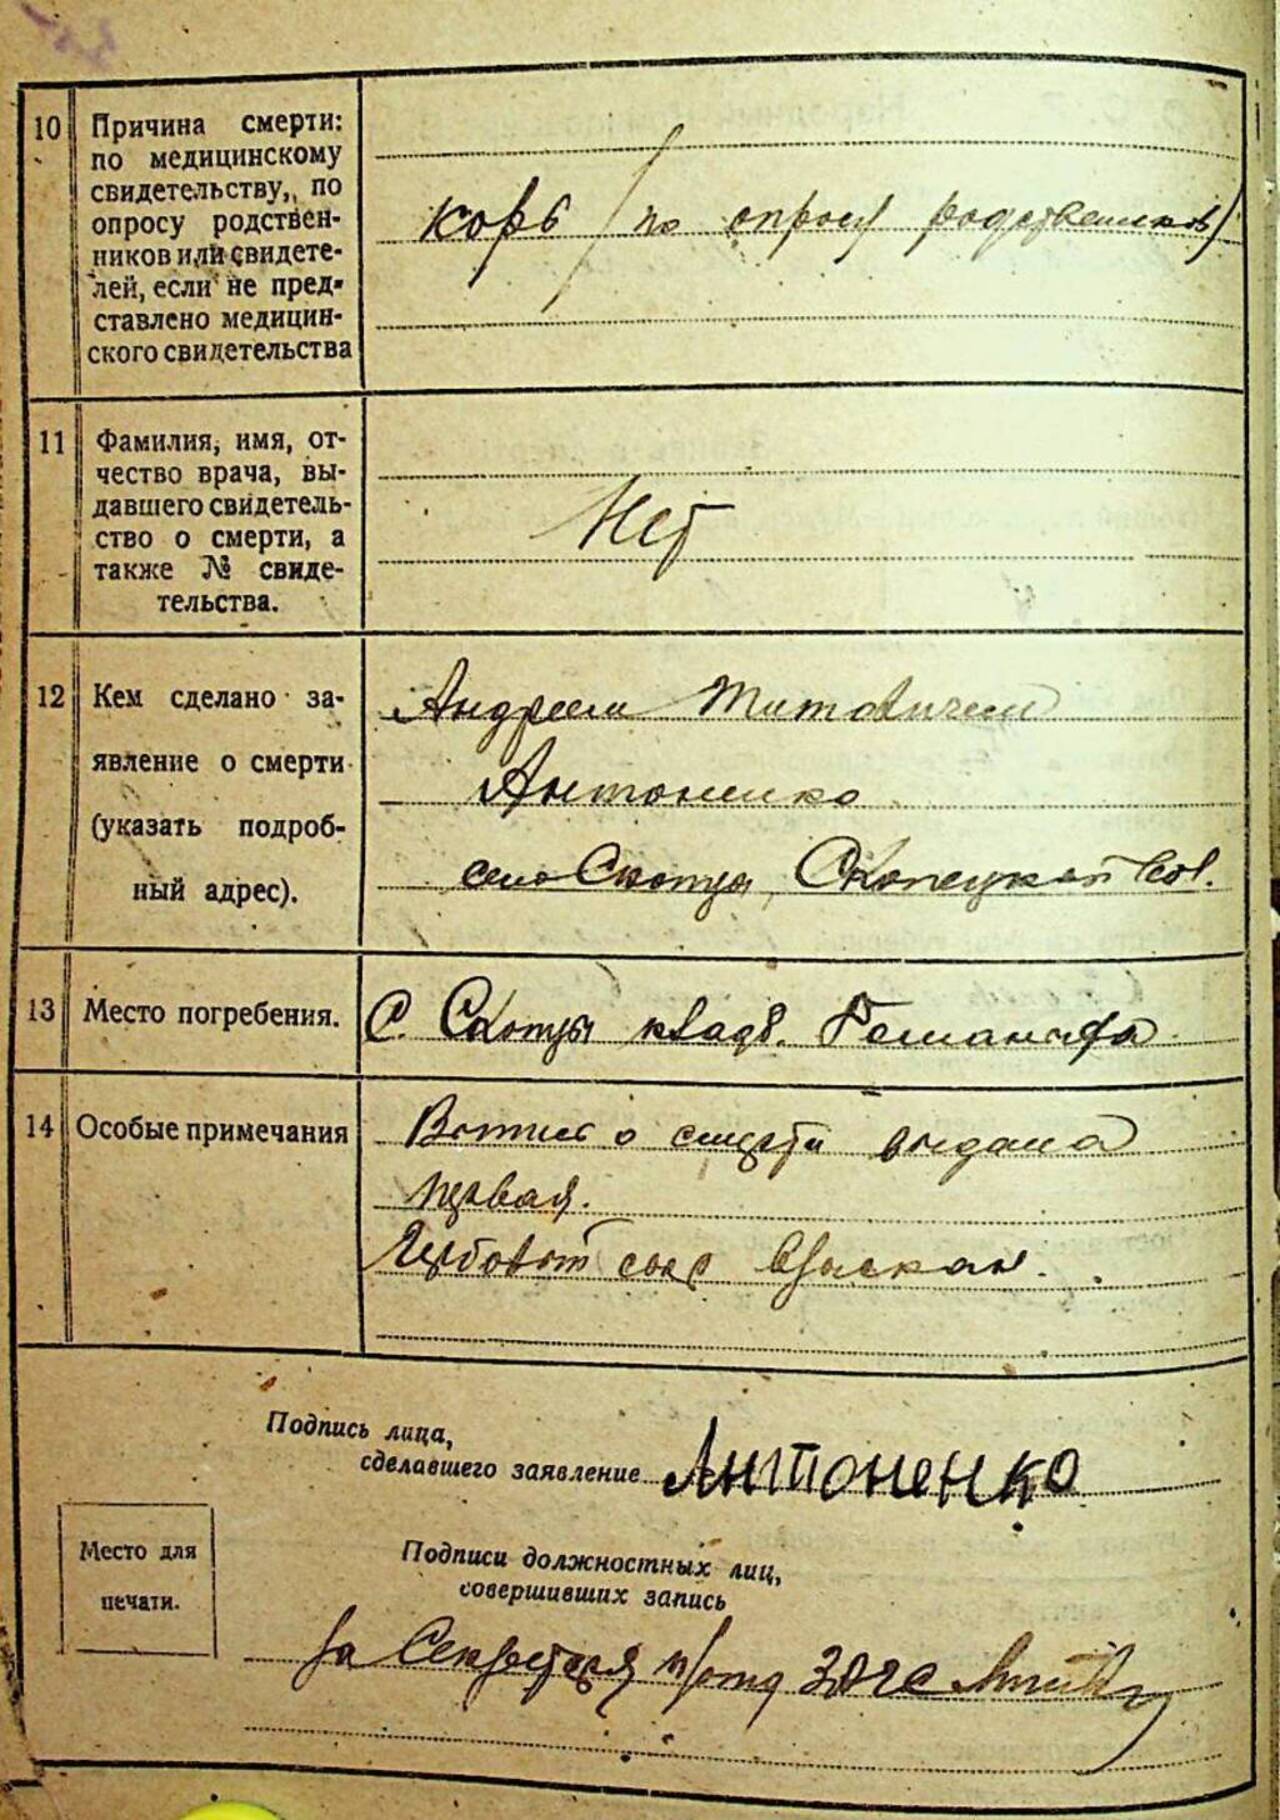 10 Причина смерти:
по медицинскому
свидетельству, по
опросу родствен-
ников или свидете-
лей, если не пред-
ставлено медицин-
ского свидетельства
корь / по опросу родственников /
11 Фамилия, имя, от-
чество врача, вы-
давшего свидетель-
ство о смерти, а
также № свиде-
тельства.
Нет
12 Кем сделано за-
явление о смерти
(указать подроб-
ный адрес).
Андреем Титовичем
Антоненко
село Скопцы, Скопецкой вол.
13 Место погребения.
С. Скопцы кладб.
14 Особые примечания
Выпись о смерти выдана
первая.
Гербовый сбор взыскан.
Подпись лица,
сделавшего заявление Антоненко
Место для
печати.
Подписи должностных лиц,
совершивших запись
За Секретаря п/отд ЗАГС